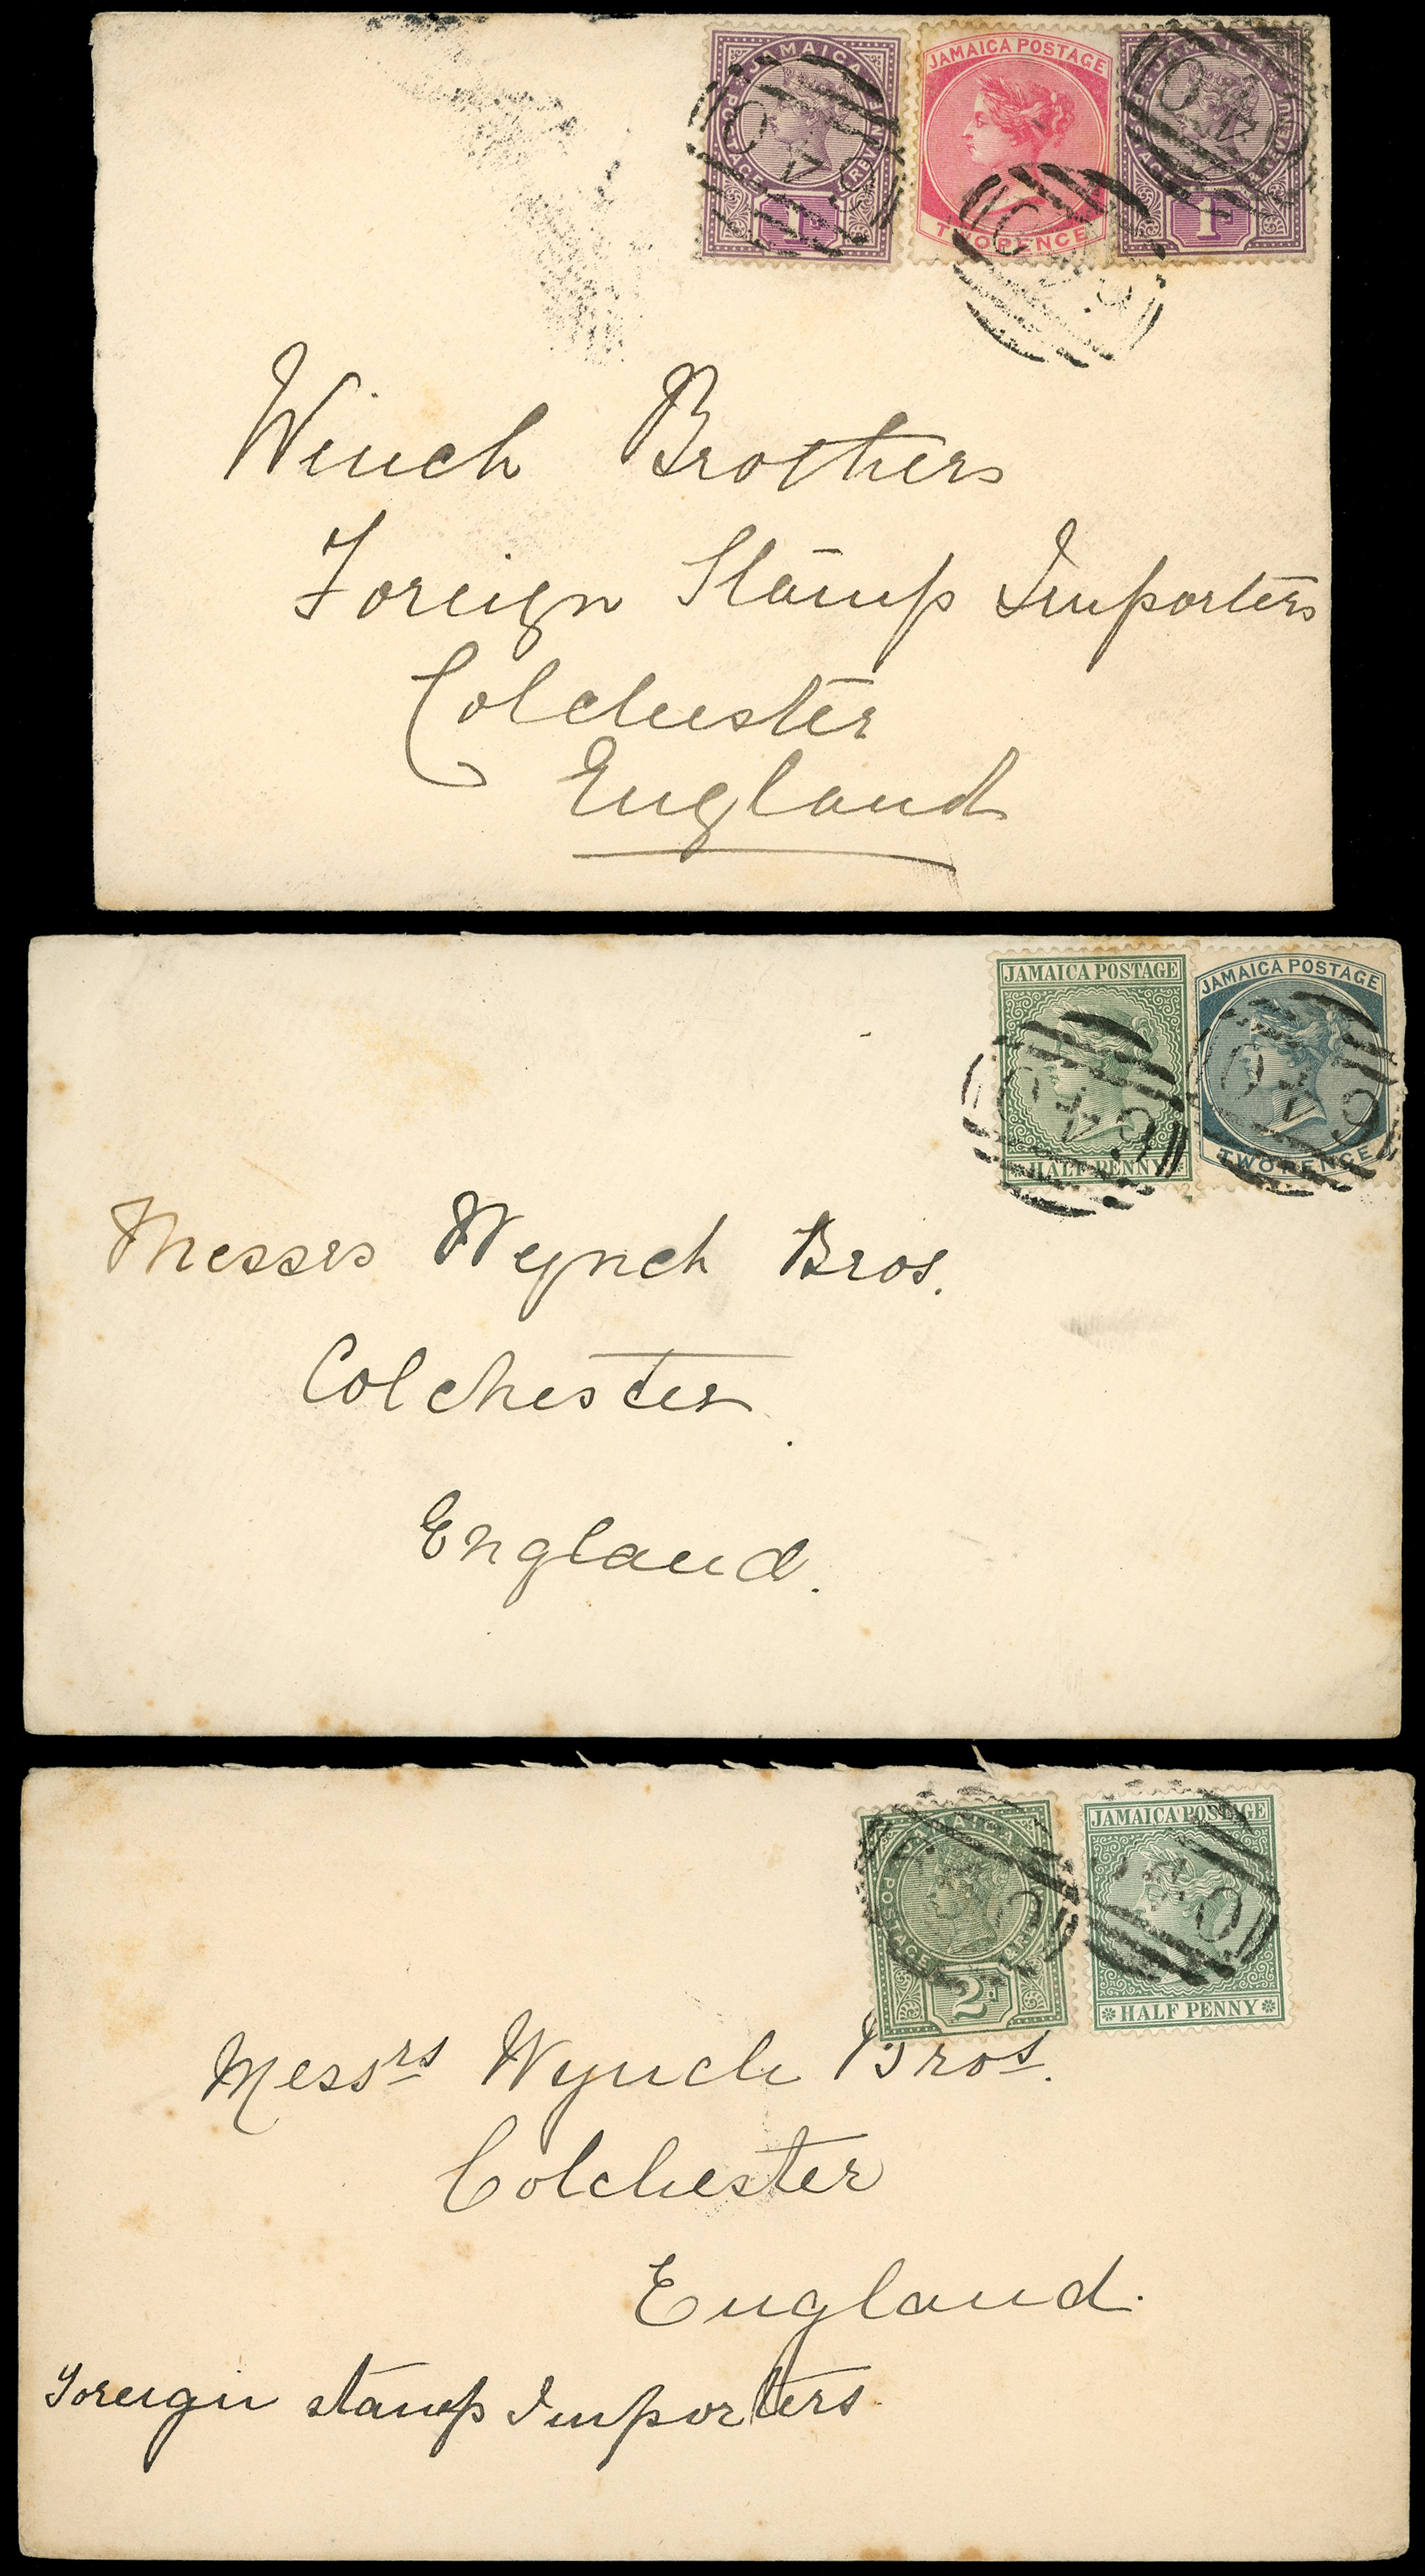 JAMAICA
POSTAGE & REVENUE
1D
JAMAICA POSTAGE
TWO PENCE
JAMAICA
1D
Winch Brothers
Foreign Stamp Importers
Colchester
England
JAMAICA POSTAGE
HALF PENNY
JAMAICA POSTAGE
TWO PENCE
Messrs Wynch Bros.
Colchester
England.
POSTAGE
2D
JAMAICA POSTAGE
HALF PENNY
Messrs Wynch Bros.
Colchester
England.
Foreign stamp Importers.